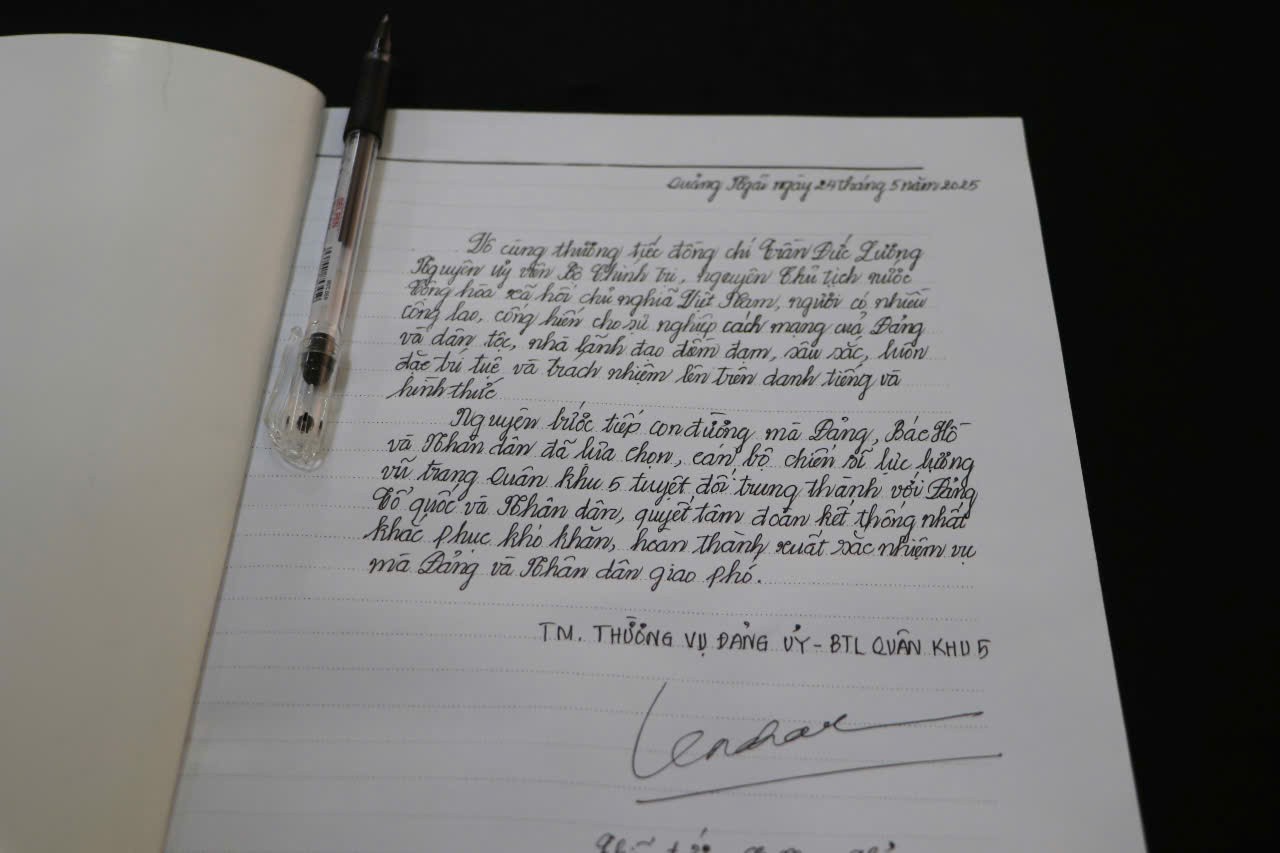 Quảng Ngãi ngày 24 tháng 5 năm 2025
Vô cùng thương tiếc đồng chí Trần Đức Lương
Nguyên ủy viên Bộ Chính trị, nguyên Chủ tịch nước
Cộng hòa xã hội chủ nghĩa Việt Nam, người có nhiều
công lao, cống hiến cho sự nghiệp cách mạng của Đảng
và dân tộc, nhà lãnh đạo điềm đạm, sâu sắc, luôn
đặc trí tuệ và trách nhiệm lên trên danh tiếng và
hình thức
Nguyện bước tiếp con đường mà Đảng, Bác Hồ
và Nhân dân đã lựa chọn, cán bộ chiến sĩ lực lượng
vũ trang Quân khu 5 tuyệt đối trung thành với Đảng
Tổ quốc và Nhân dân, quyết tâm đoàn kết thống nhất
khắc phục khó khăn, hoàn thành xuất sắc nhiệm vụ
mà Đảng và Nhân dân giao phó.
TM. THƯỜNG VỤ ĐẢNG ỦY - BTL QUÂN KHU 5